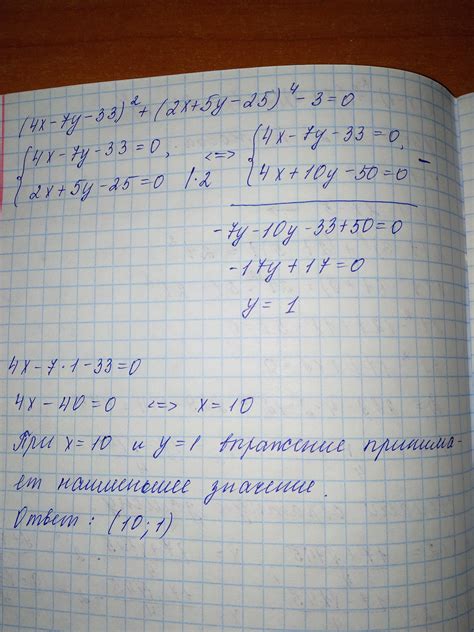 (4x-7y-33)² + (2x+5y-25)⁴ - 3 = 0
{4x-7y-33=0, <=> {4x-7y-33=0, -
{2x+5y-25=0 |·2 {4x+10y-50=0
-7y-10y-33+50=0
-17y+17=0
y = 1
4x-7·1-33=0
4x-40=0 <=> x=10
При x=10 и y=1 выражение принима-
ет наименьшее значение.
Ответ: (10;1)